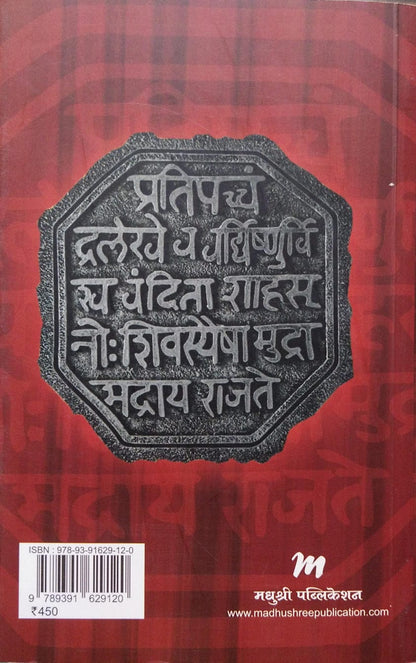 प्रतिपच्चं
द्रलेखेव वर्धिष्णुर्वि
श्व वंदिता शाहसू
नोः शिवस्यैषा मुद्रा
भद्राय राजते
ISBN : 978-93-91629-12-0
9 789391 629120
₹450
m
मधुश्री पब्लिकेशन
www.madhushreepublication.com